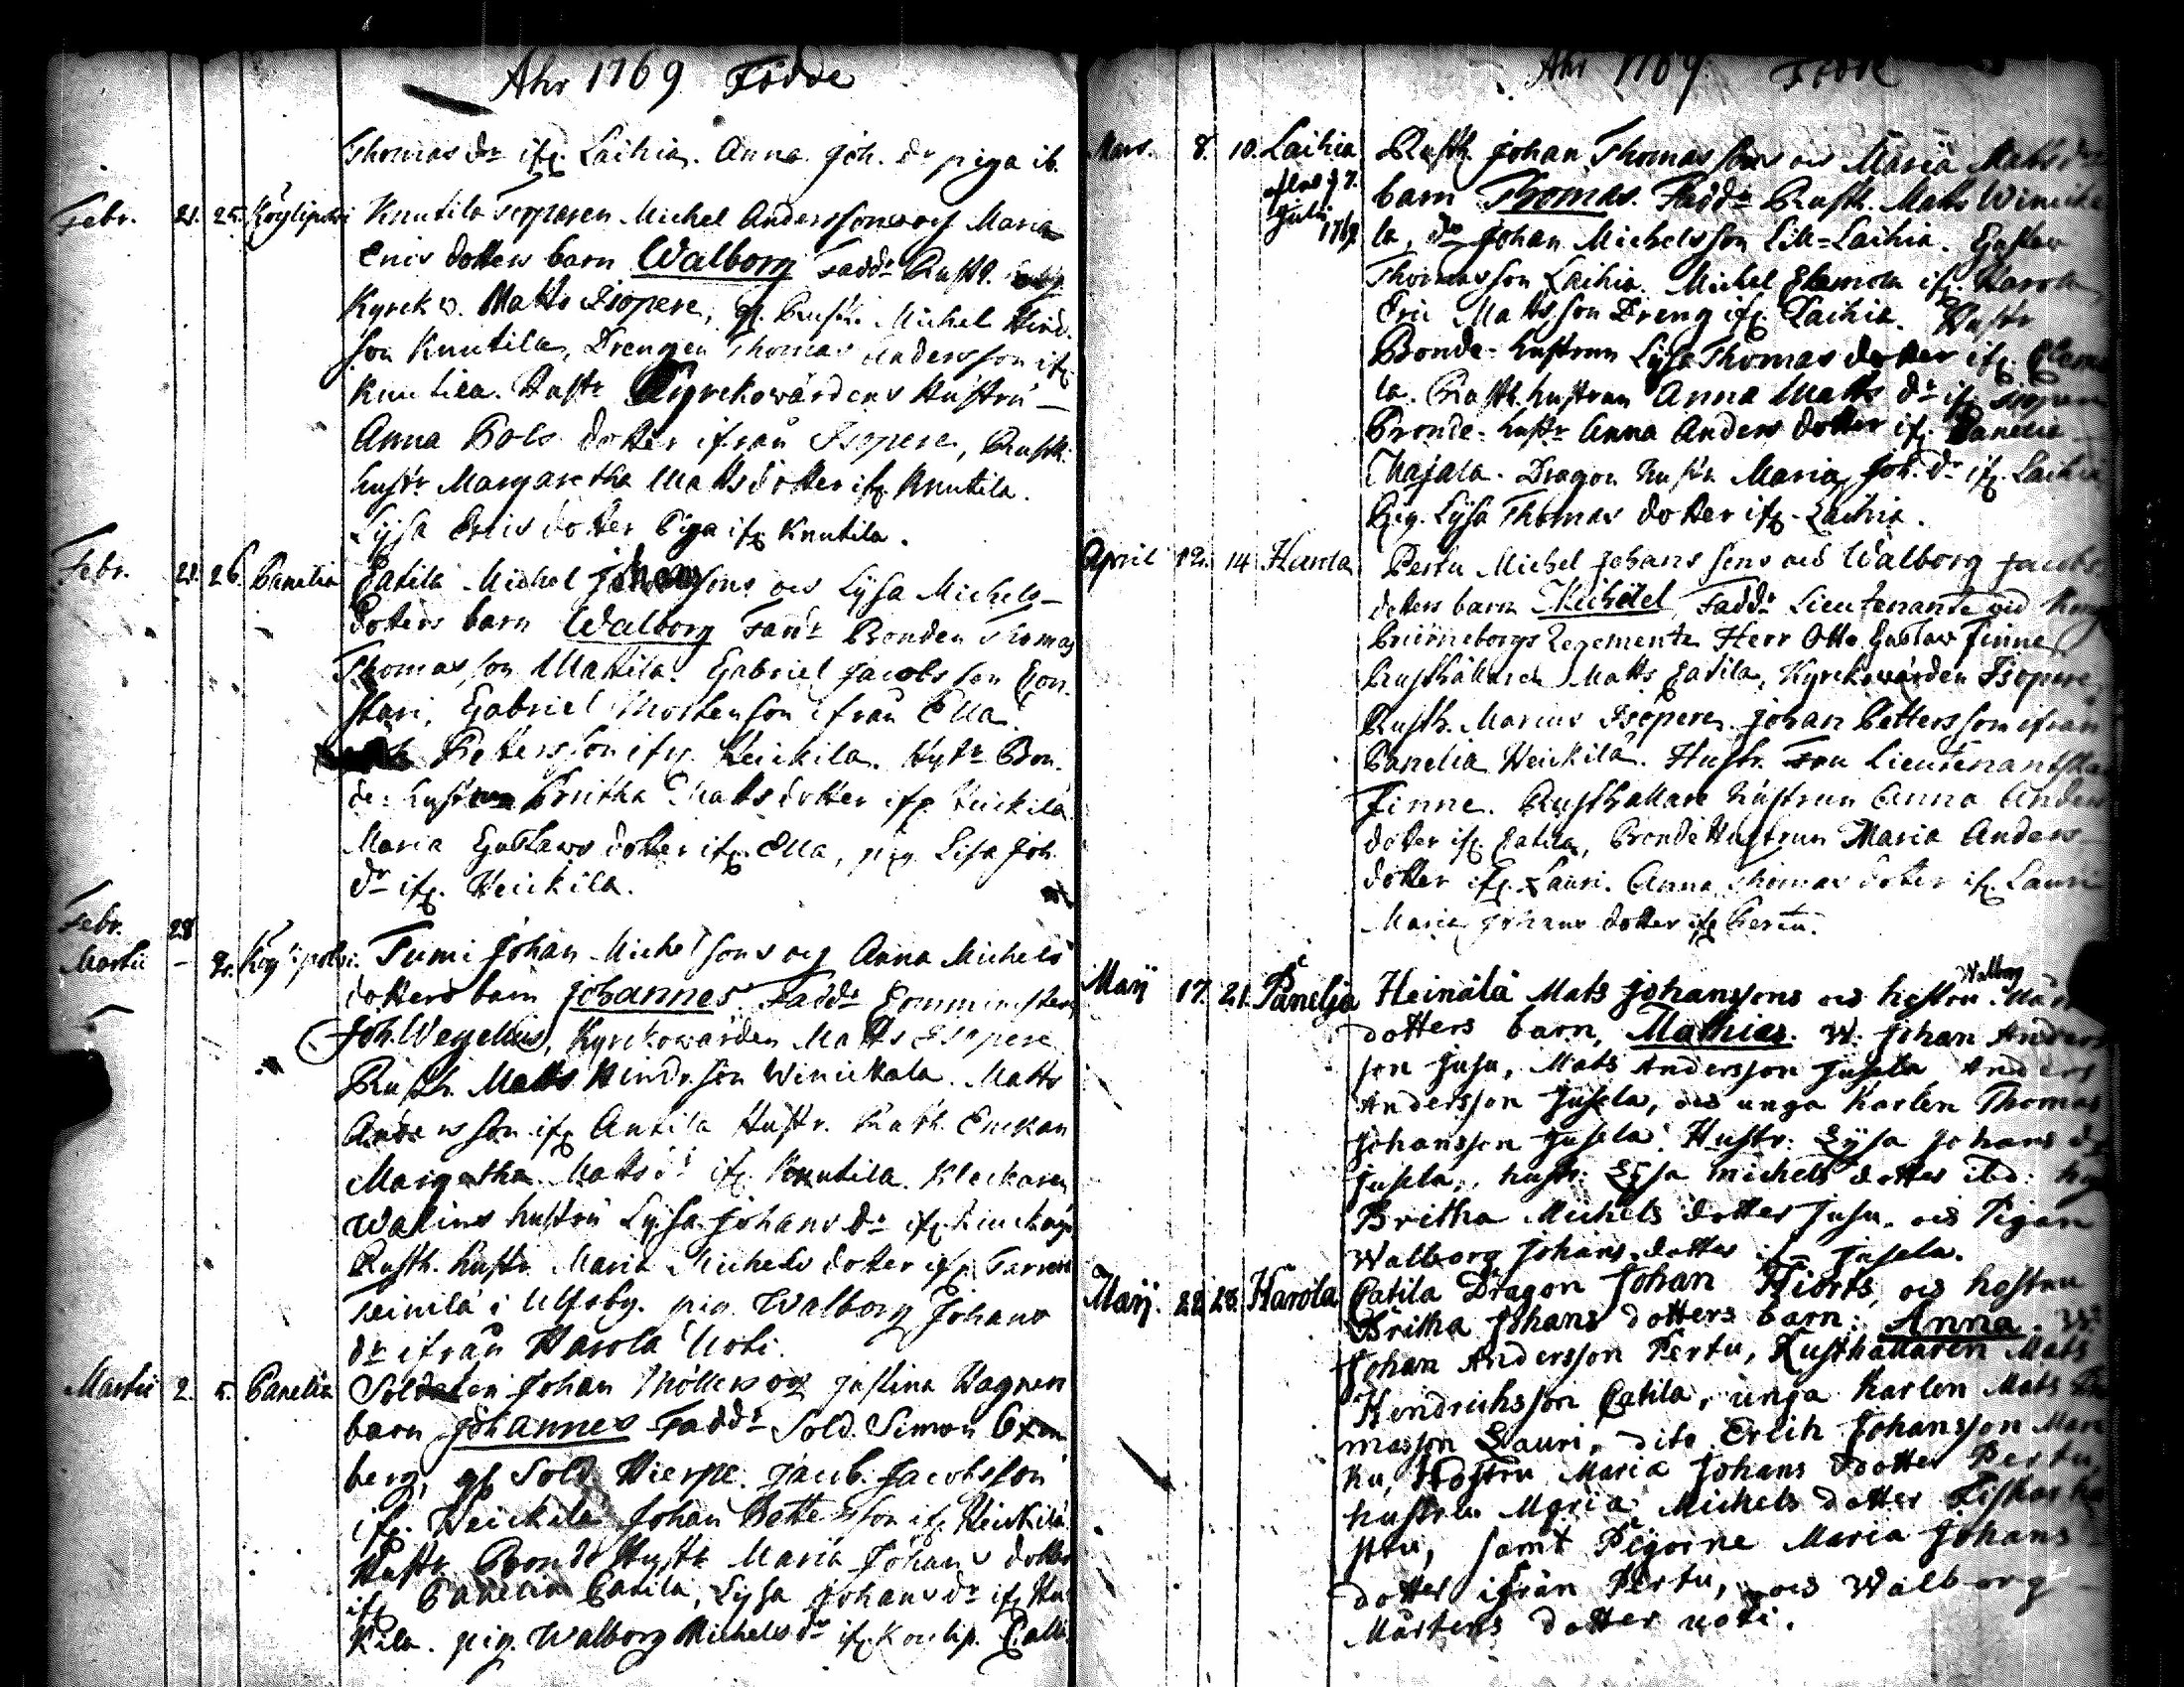 Ahr 1769 Födde
Thomas dr ifr. Laihia. Anna Joh. dr piga ib.
Febr. 21. 25. Köylipolvi Knutila Topparen Michel Anderssons och Maria
Erics dotters barn Walborg Faddr Rusth.
Kyrckw. Matts Isopere, gl. Rusth. Michel Hind.
son Knutila, Drengen Thomas Andersson ifr
Knutila. Hustr Kyrckowärdens Hustru
Anna Pols dotter ifrån Isopere, Rusth.
hustr Margaretha Mattsdotter ifr. Knutila.
Lysa Erics dotter Piga ifr Knutila.
Febr. 21. 26. Panelia Eatila Michel Johanssons och Lysa Michels-
Dotters barn Walborg Faddr Bonden Thomas
Thomasson Mattila. Gabriel Jacobsson
Gabriel Mortenson ifrån Ella.
Pettersson ifr. Heickila. Hustr Bon-
de-hustrun Britha Matts dotter ifr Heickila
Maria Gustaws dotter ifr. Ella, pig. Lisa Joh.
dr ifr. Heickila.
Febr. 28
Martii - 2. Köylipolvi. Tumi Johan Michelsons och Anna Michels
dotters barn Johannes. Faddr Comminister
Joh. Wegelius, Kyrckowärden Matts Isopere
Rusth. Matts Hindrson Winickala. Matts
Andersson ifr Antila Hustr. Rusth. Enckan
Margetha Matts dr ifr. Knutila. Klockaren
Walins hustru Lysa Johans dr ifr.
Rusth. hustr Maria Michels dotter ifr
i Ulfsby. pig. Walborg Johans
dr ifrån Harola Uoti.
Martii 2. 5. Panelia Soldaten Johan Möllers och Justina Wagners
barn Johannes Faddr Sold. Simon
berg, gl Sold Hierpe. Jacob Jacobsson
ifr. Heickila Johan Pettersson ifr Heickila.
Hustr Bonde Hustr Maria Johans dotter
ifr Panelia Eatila, Lysa Johans dr ifr Hei
kila. pig. Walborg Michels dr ifr
Ahr 1769. Födde
Mars. 8. 10. Laihia Rusth. Johan Thomas sons och Maria Matts
barn Thomas. Faddr Rusth. Matts Winicka
Julii 1769
la, dr Johan Michelsson Lill-Laihia. Gustav
Thomasson Laihia. Michel ifr. Harola
Eric Mattsson Dreng ifr. Laihia. Hustr
Bonde-hustrun Lysa Thomas dotter ifr.
la. Rusth. hustrun Anna Matts dr ifr Isopere
Bonde-hustr Anna Anders dotter ifr. Panelia
Majala. Dragon hustr Maria Joh. dr ifr. Laihia
Pig. Lysa Thomas dotter ifr. Laihia.
April 12. 14 Harola Pertu Michel Johans sons och Walborg Jacobs
dotters barn Michael, Faddr Lieutenante vid Kong
Biörneborgs Regemente Herr Otto Gustav Finne
Rusthållaren Matts Eatila, Kyrckowärden Isopere,
Rusth. Marcus Isopere. Johan Pettersson ifrån
Panelia Heickilä. Hustr. Fru Lieutenantskan
Finne. Rusthållare hustrun Anna Anders
dotter ifr. Eatila, Bonde Hustrun Maria Anders
dotter ifr. Lauri. Anna Thomas dotter ifr. Lauri
Maria Johans dotter ifr Pertu.
Maij 17. 21. Panelja Heinälä Mats Johanssons och hostru Walborg
dotters barn, Mathias. W. Johan Anders
son Jusu, Mats Andersson Jusela Anders
Andersson Jusela, och unga Karlen Thomas
Johansson Jusela. Hustr: Lysa Johans dr
Jusela, hustr: Lysa Michels dotter ibd:
Britha Michels dotter Jusu. och Pigan
Walborg Johans dotter ifr Jusela.
Maij. 22 28. Harola Eatila Dragon Johan Hiorts, och hostru
Britha Johans dotters barn: Anna. W:
Johan Andersson Pertu, Rusthållaren Mats
Hendrichsson Eatila, unga Karlen Mats Tho
masson Lauri, dito Erich Johansson Mare
ku, Hostru Maria Johans dotter Pertu,
hustru Maria Michels dotter
samt Pigorne Maria Johans
dotter ifrån Pertu, och Walborg
Mårtens dotter uoti.